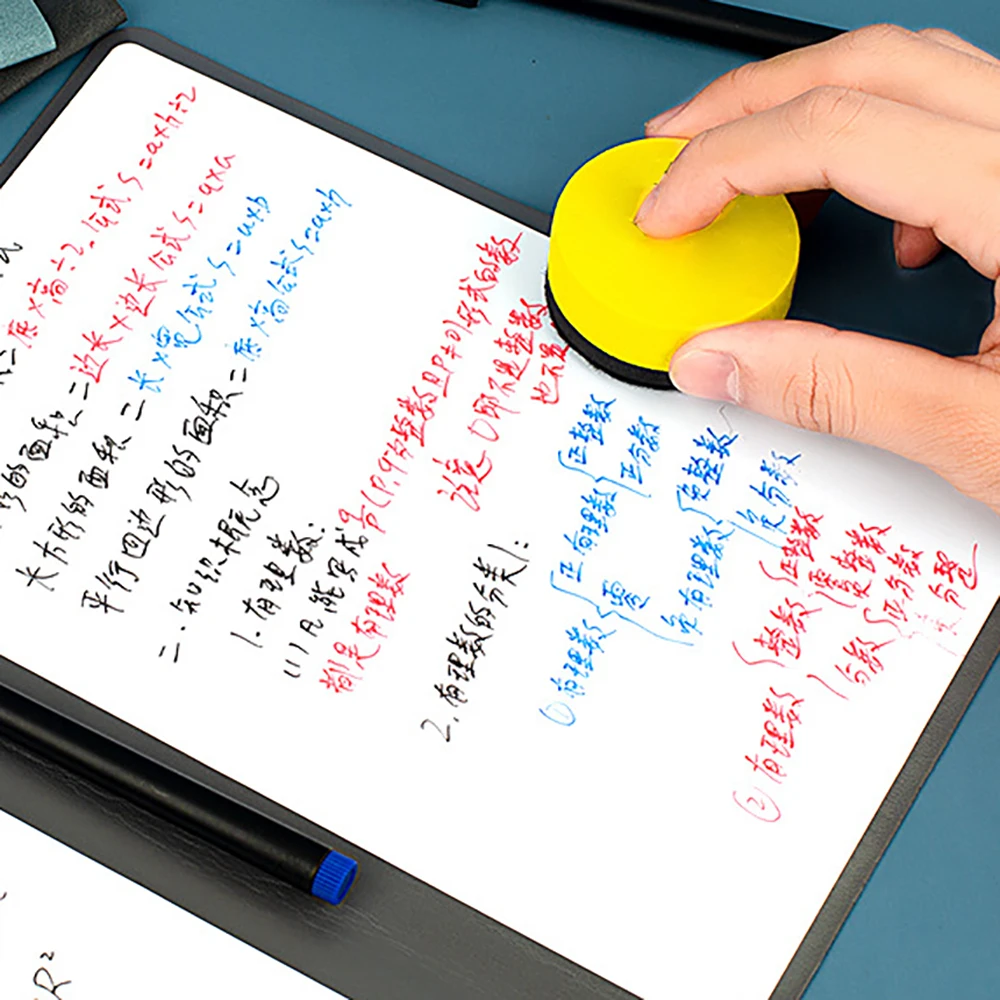 =底×高÷2. 公式 S=a×h÷2
形的面积=边长×边长 公式 S=a×a
长方形的面积=长×宽 公式 S=a×b
平行四边形的面积=底×高 公式 S=a×h
二.知识概念
1.有理数:
(1)凡能写成 (P,q为整数且P≠0)形式的数
都是有理数
注意 ①即不是整数
也不
2.有理数的分类:
①有理数 正有理数 正整数
正分数
零
负有理数 负整数
负分数
②有理数 整数 正整数
负整数
分数 正分数
R²